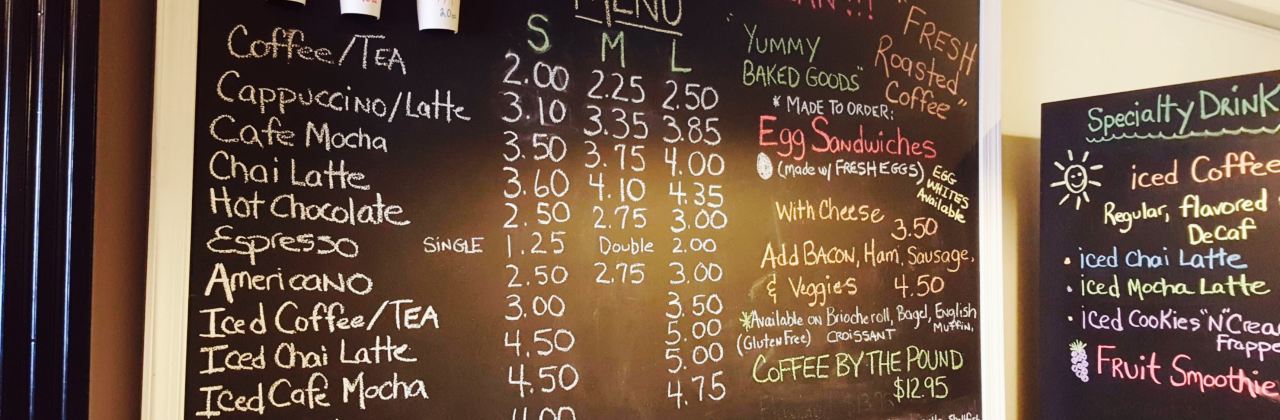 MENU
S M L
Coffee/TEA 2.00 2.25 2.50
Cappuccino/Latte 3.10 3.35 3.85
Cafe Mocha 3.50 3.75 4.00
Chai Latte 3.60 4.10 4.35
Hot Chocolate 2.50 2.75 3.00
Espresso SINGLE 1.25 Double 2.00
Americano 2.50 2.75 3.00
Iced Coffee/TEA 3.00 3.50
Iced Chai Latte 4.50 5.00
Iced Cafe Mocha 4.50 5.00
4.75
"YUMMY
BAKED GOODS"
"FRESH
Roasted
Coffee"
* MADE TO ORDER:
Egg Sandwiches
(made w/ FRESH EGGS)
EGG
WHITES
Available
With Cheese 3.50
Add BACON, Ham, Sausage,
& Veggies 4.50
*Available on Briocheroll, Bagel, English
Muffin,
(Gluten Free) CROISSANT
COFFEE BY THE POUND
$12.95
Specialty DRINK
iced Coffee
Regular, flavored
DeCaf
• iced Chai Latte
• iced Mocha Latte
• iced Cookies "N" Crea
Frappe
Fruit Smoothie